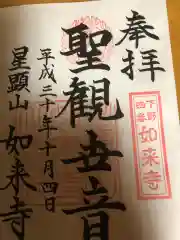 奉拝
下野
四番
如来寺
聖観世音
平成三十年十月四日
星顕山
如来寺